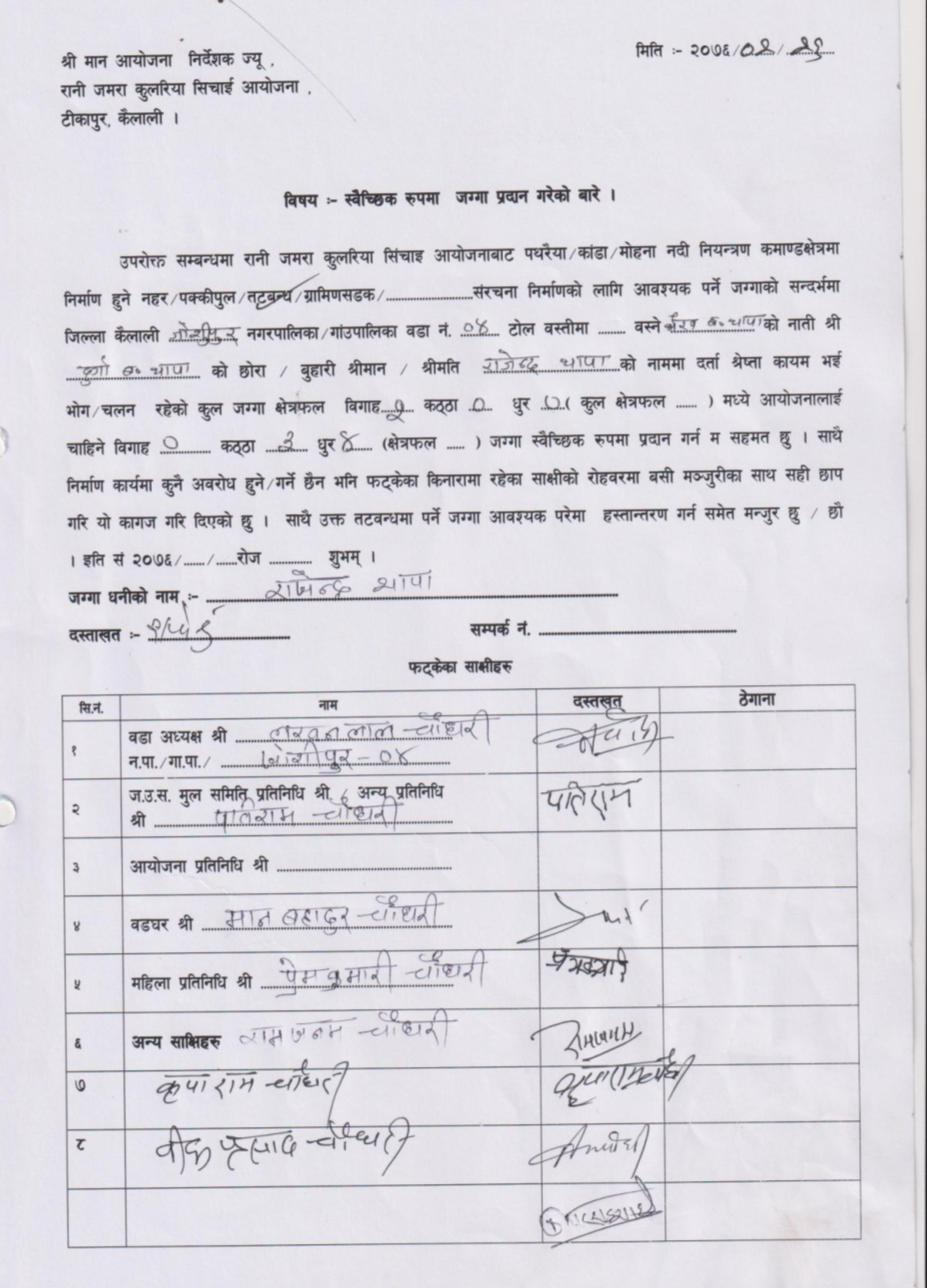 मिति :- २०७६/०२/२६
श्री मान आयोजना निर्देशक ज्यू ,
रानी जमरा कुलरिया सिचाई आयोजना ,
टीकापुर, कैलाली ।
विषय :- स्वैच्छिक रुपमा जग्गा प्रदान गरेको बारे ।
उपरोक्त सम्बन्धमा रानी जमरा कुलरिया सिंचाइ आयोजनाबाट पथरैया/कांडा/मोहना नदी नियन्त्रण कमाण्डक्षेत्रमा
निर्माण हुने नहर/पक्कीपुल/तटबन्ध/ग्रामिणसडक/....................संरचना निर्माणको लागि आवश्यक पर्ने जग्गाको सन्दर्भमा
जिल्ला कैलाली जोशीपुर नगरपालिका/गांउपालिका वडा नं. ०४ टोल वस्तीमा ....... वस्ने भैरव ब. थापा को नाती श्री
दुर्गा ब. थापा को छोरा / बुहारी श्रीमान / श्रीमति राजेन्द्र थापा को नाममा दर्ता श्रेष्ता कायम भई
भोग/चलन रहेको कुल जग्गा क्षेत्रफल विगाह १ कठ्ठा ० धुर ० ( कुल क्षेत्रफल ...... ) मध्ये आयोजनालाई
चाहिने विगाह ० कठ्ठा ३ धुर ४ (क्षेत्रफल ..... ) जग्गा स्वैच्छिक रुपमा प्रदान गर्न म सहमत छु । साथै
निर्माण कार्यमा कुनै अवरोध हुने/गर्ने छैन भनि फट्केका किनारामा रहेका साक्षीको रोहवरमा बसी मञ्जुरीका साथ सही छाप
गरि यो कागज गरि दिएको छु । साथै उक्त तटवन्धमा पर्ने जग्गा आवश्यक परेमा हस्तान्तरण गर्न समेत मन्जुर छु / छौ
। इति सं २०७६/....../......रोज ........... शुभम् ।
जग्गा धनीको नाम :- राजेन्द्र थापा
दस्ताखत :-
सम्पर्क नं. ....................
फट्केका साक्षीहरु
सि.नं. नाम दस्तखत् ठेगाना
१ वडा अध्यक्ष श्री लखन लाल चौधरी
न.पा./गा.पा./ जोशीपुर - ०४
२ ज.उ.स. मुल समिति प्रतिनिधि श्री / अन्य प्रतिनिधि
श्री पतिराम चौधरी पतिराम
३ आयोजना प्रतिनिधि श्री ....................
४ वडघर श्री मान बहादुर चौधरी
५ महिला प्रतिनिधि श्री प्रेम कुमारी चौधरी
६ अन्य साक्षिहरु राम जनम चौधरी
७ कृपा राम चौधरी कृपाराम चौधरी
८ चौधरी